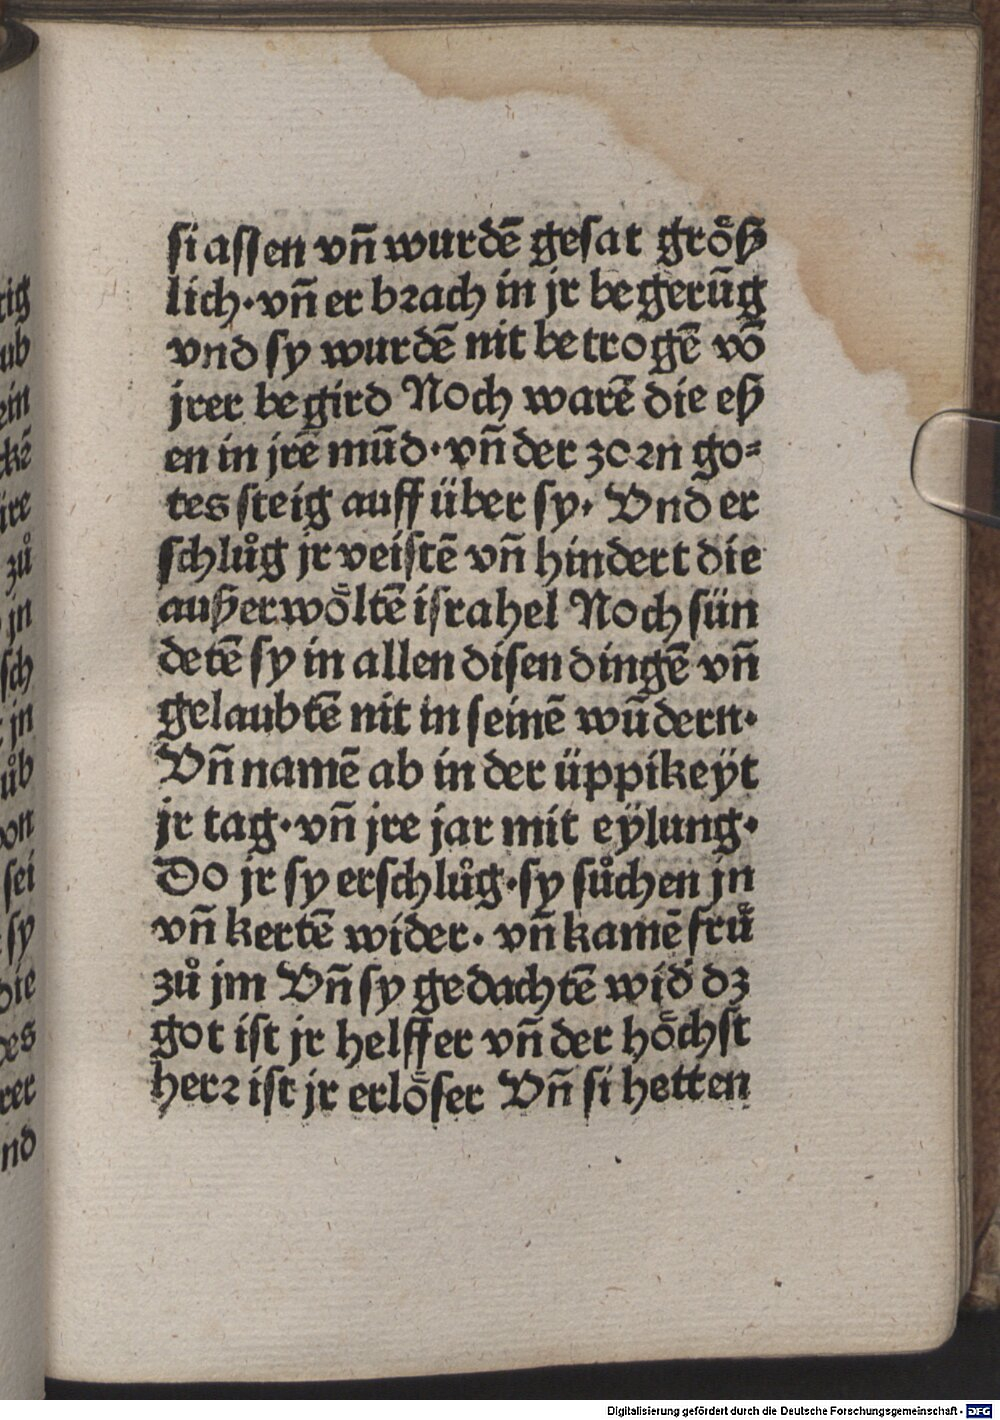 si assen vñ wurdē gesat grőß
lich · vñ er brach in jr begerūg
vnd sy wurdē nit betrogē vō
jrer begird Noch warē die eß
en in jrē mūd · vñ der zorn go=
tes steig auff über sy · Vnd er
schlůg jr veistē vñ hindert die
außerwöltē israhel Noch sün
detē sy in allen disen dingē vñ
gelaubtē nit in seinē wūdern ·
Vñ namē ab in der üppikeÿt
jr tag · vñ jre jar mit eÿlung ·
Do jr sy erschlůg · sy sůchen jn
vñ kertē wider · vñ kamē frů
zů jm Vñ sy gedachtē wid̄ dz
got ist jr helffer vñ der höchst
herr ist jr erlöser Vñ si hetten
rig
ub
ein
ckē
ire
zů
jn
sch
jn
ůb
von
sei
sy
die
des
rer
nd
Digitalisierung gefördert durch die Deutsche Forschungsgemeinschaft - DFG